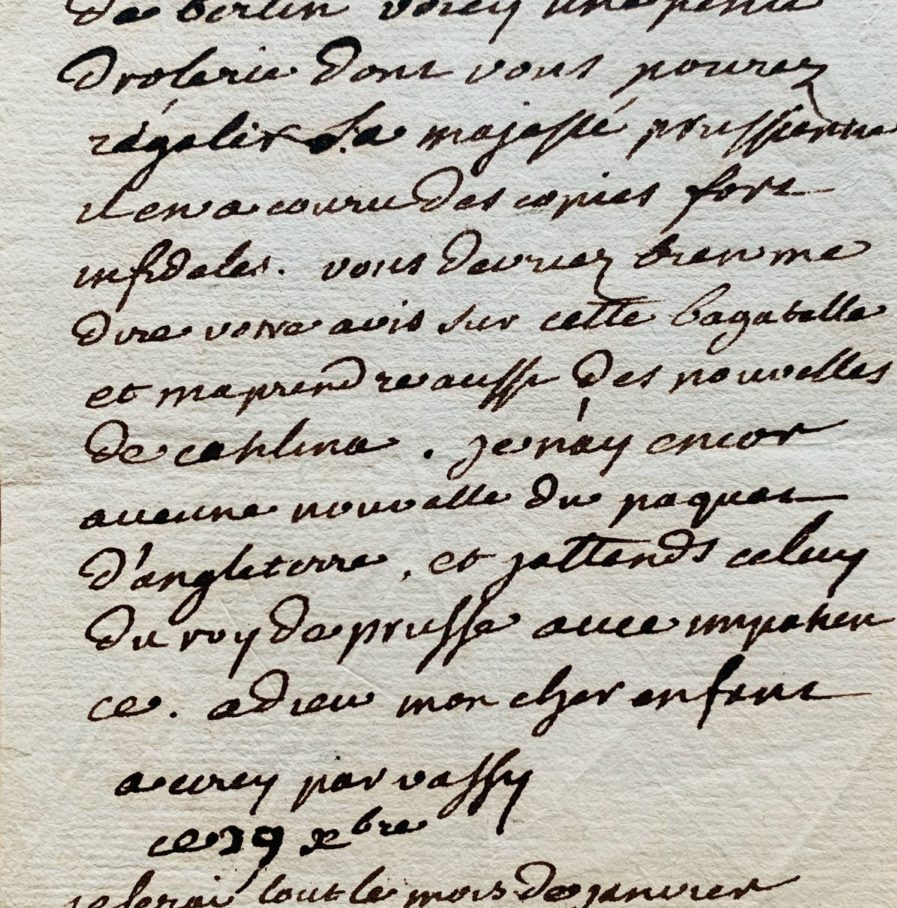 de berlin voicy une petite
drolerie dont vous pourez
régaler sa majesté prussienne
il en a couru des copies fort
infideles. vous devriez bien me
dire votre avis sur cette bagatelle
et maprendre aussi des nouvelles
de catilina. je n'ay encor
aucune nouvelle du paquet
d'angleterre, et jattends celuy
du roy de prusse avec impatien
ce. adieu mon cher enfant
a cirey par vassy
ce 29 xbre
je serai tout le mois de janvier